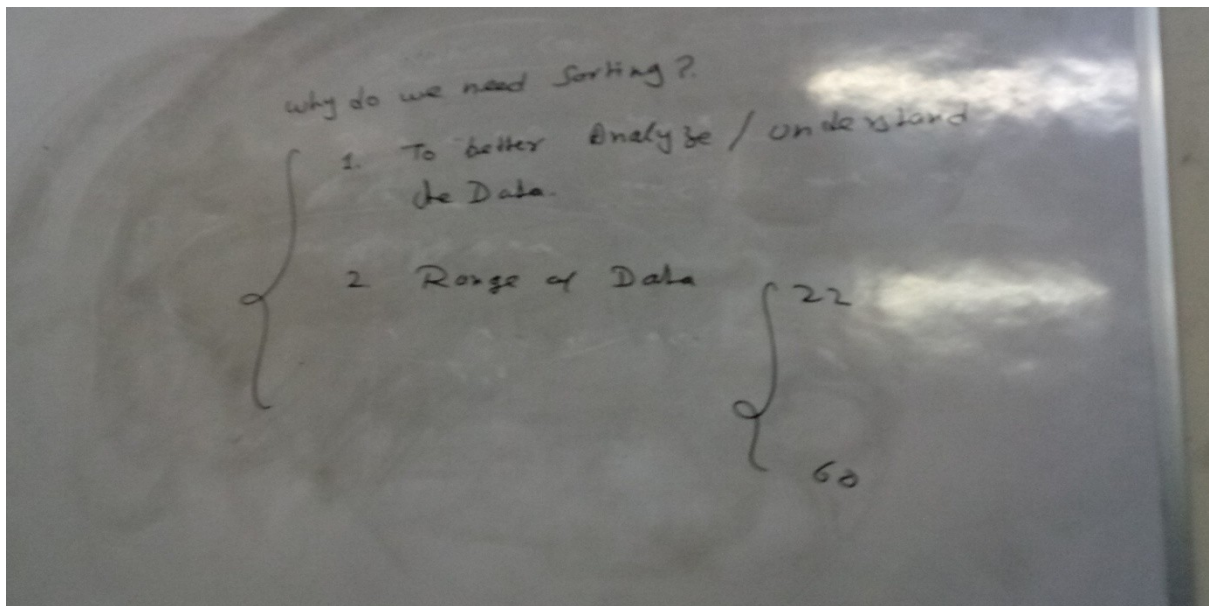 Why do we need Sorting?
1. To better Analyze / understand
the Data.
2 Range of Data
22
60